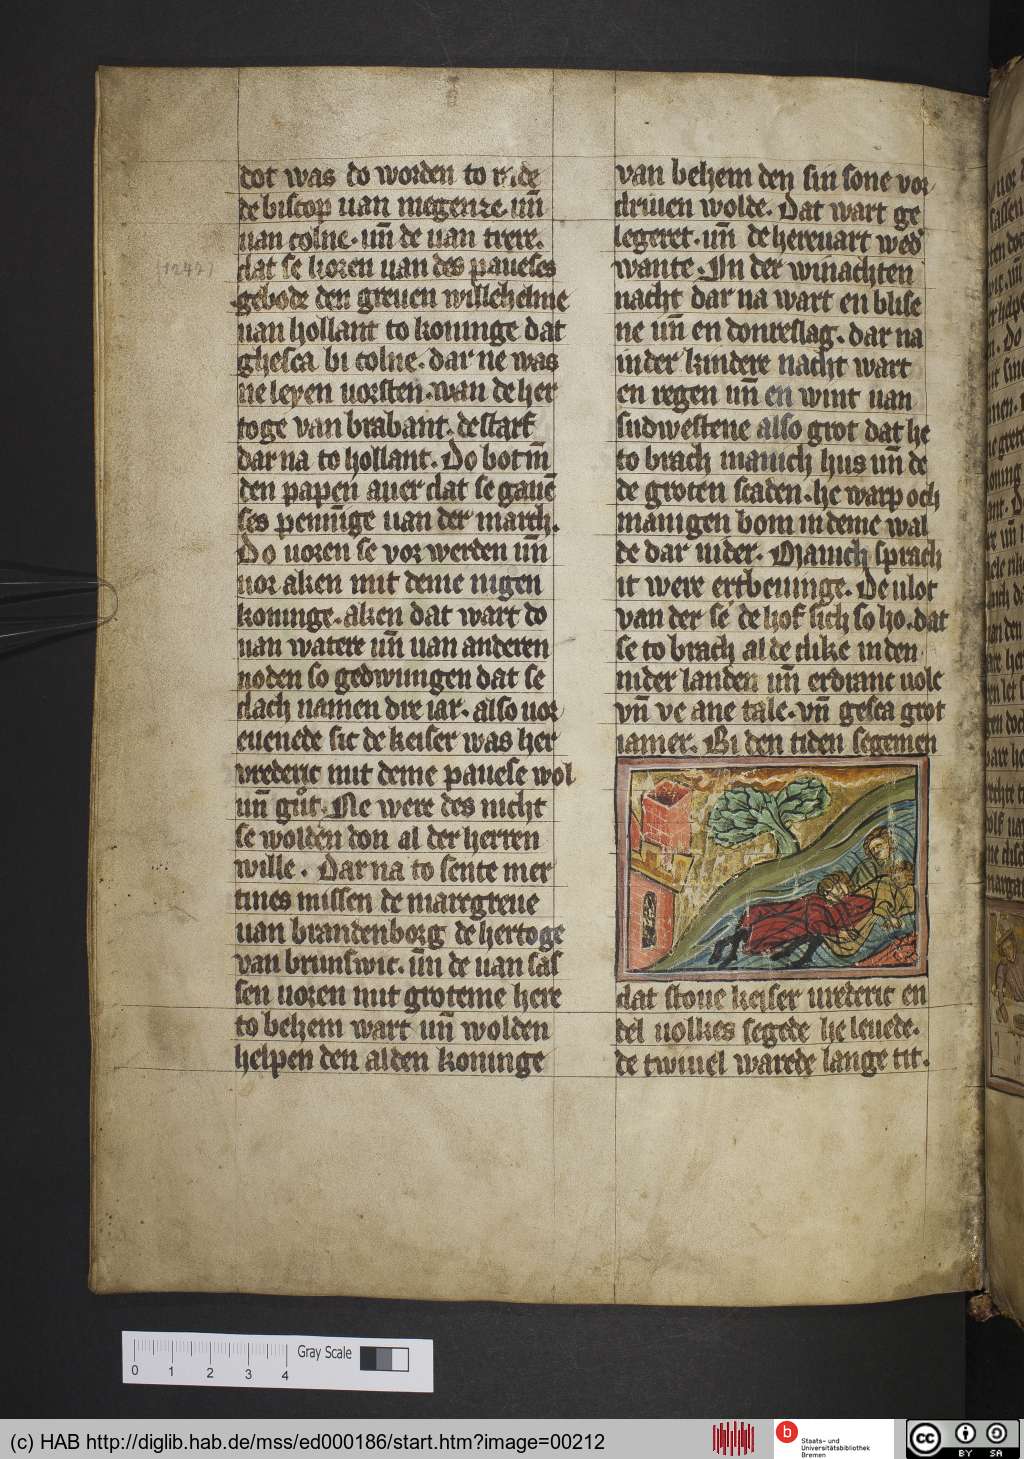 dot was do worden to rade
de biscop uan megenze. uñ
uan colne. uñ de uan trere.
dat se koren uan des paueses
(1247)
gebode den greuen willehelme
uan hollant to koninge dat
ghesca bi colne. dar ne was
ne leyen uorsten. wan de her
toge van brabant. de starf
dar na to hollant. Do bot m̄
den papen auer dat se gauē
ses penninge uan der march.
Do uoren se vor werden uñ
uor aken mit deme nigen
koninge. aken dat wart do
uan watere uñ uan anderen
noden so gedwungen dat se
dach namen dre iar. also uor
euenede sic de keiser was her
vrederic mit deme pauese wol
uñ gůt. Ne were des nicht
se wolden don al der herren
wille. Dar na to sente mer
tines missen de marcgreue
uan brandenborg de hertoge
van brunswic. uñ de uan sas
sen uoren mit groteme here
to behem wart uñ wolden
helpen den alden koninge
van behem den sin sone vor
driuen wolde. Dat wart ge
legeret. uñ de hereuart wed'
wante. In der winachten
nacht dar na wart en blise
ne uñ en donreslag. dar na
in der kindere nacht wart
en regen uñ en wint uan
sudwestene also grot dat he
to brach manich hus uñ de
de groten scaden. he warp och
manigen bom in deme wal
de dar nider. Manich sprach
it were ertbeuinge. De ulot
van der se de hof sich so ho. dat
se to brach al de dike in den
nider landen uñ erdranc uolc
vñ ve ane tale. vñ gesca grot
iamer. Bi den tiden segemen
dat stoue keiser urederic en
del uolkes segede he leuede.
de twiuel warede lange tit.
0 1 2 3 4
Gray Scale
(c) HAB http://diglib.hab.de/mss/ed000186/start.htm?image=00212
b
Staats- und
Universitätsbibliothek
Bremen
cc
BY SA